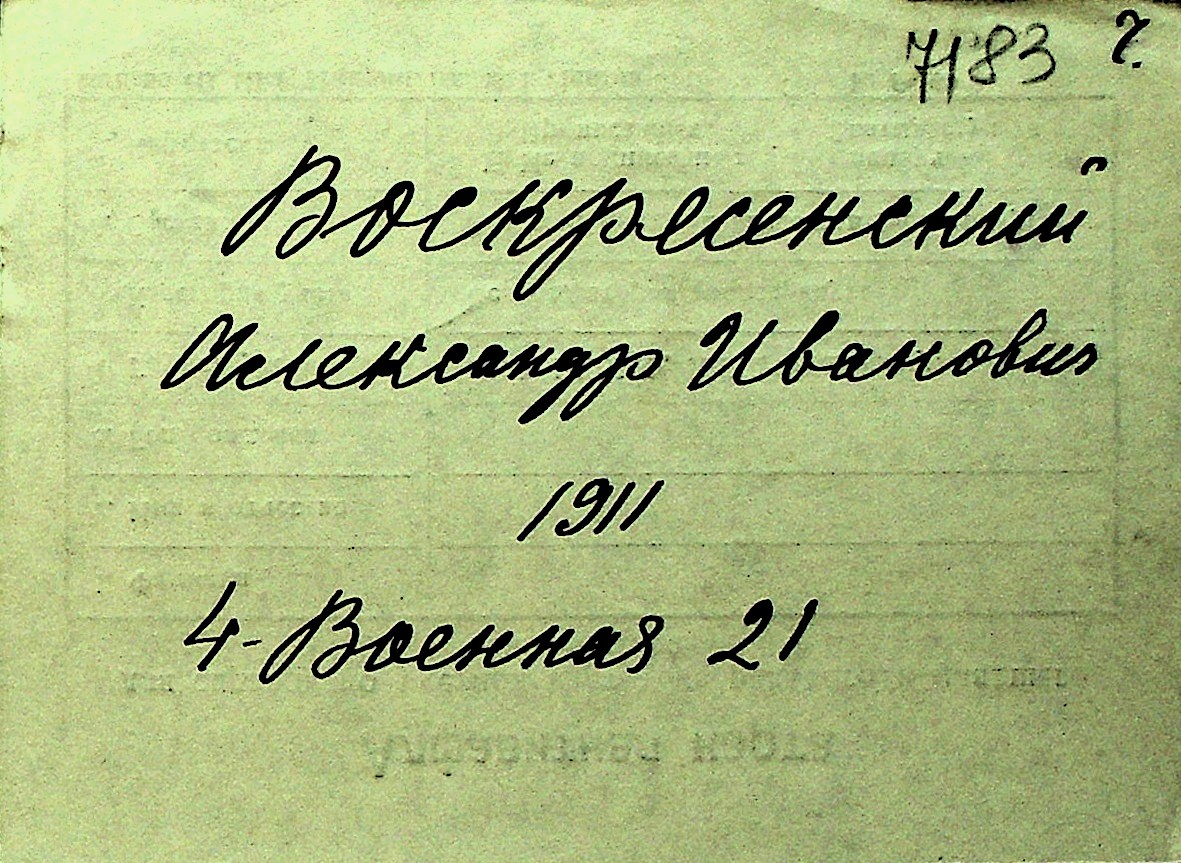 7183 г.
Воскресенский
Александр Иванович
1911
4-Военная 21